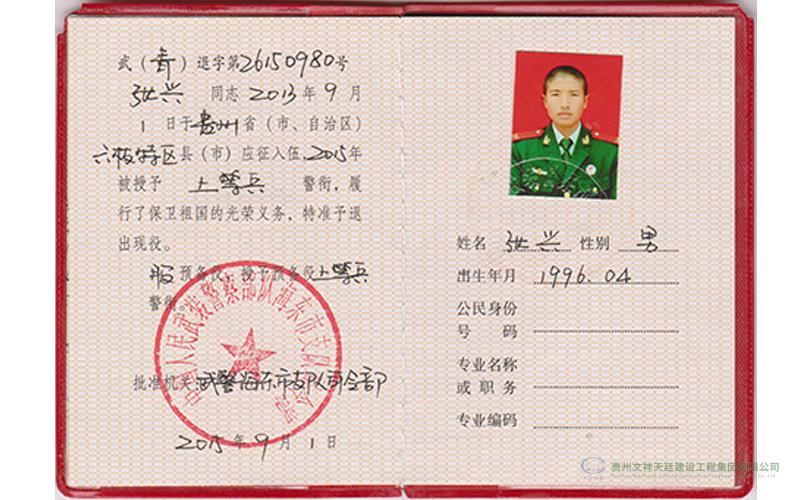 武（青）退字第26150980号
张兴 同志 2013年9月
1日于贵州省（市、自治区）
六枝特区县（市）应征入伍，2015年
被授予 上等兵 警衔，履
行了保卫祖国的光荣义务，特准予退
出现役。
服预备役，授予预备役上等兵
警衔。
中国人民武装警察部队海东市支队司令部
批准机关 武警海东市支队司令部
2015年9月1日
姓名 张兴 性别 男
出生年月 1996.04
公民身份
号码
专业名称
或职务
专业编码
贵州文祥天廷建设工程集团有限公司